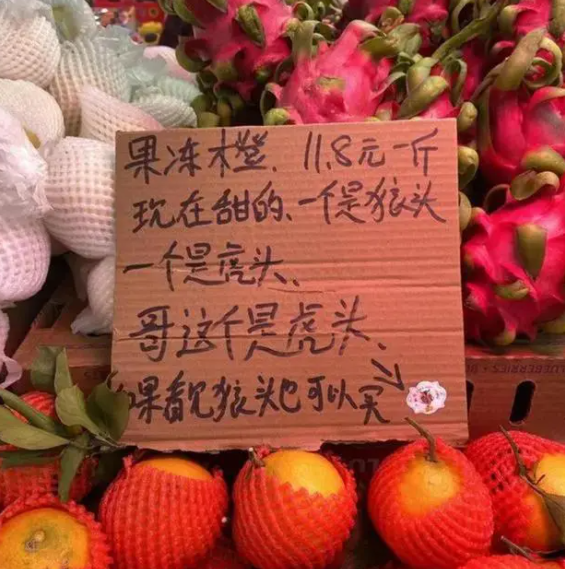 果冻橙、11.8元一斤
现在甜的、一个是狼头
一个是虎头、
哥这个是虎头、
如果看见狼头也可以买